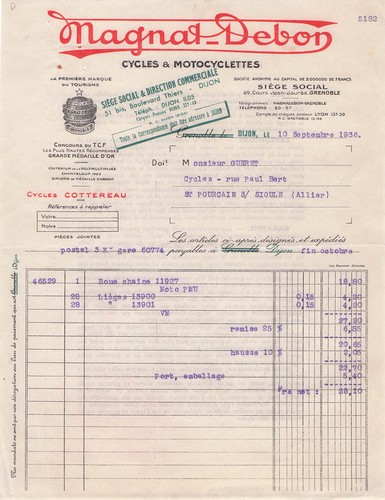 D
5182
Magnat-Debon
CYCLES & MOTOCYCLETTES
LA PREMIÈRE MARQUE
DU TOURISME
CONCOURS DU T.C.F
LES PLUS HAUTES RÉCOMPENSES
GRANDE MÉDAILLE D'OR
CRITERIUM DE LA POLYMULTIPLIÉE
CHANTELOUP 1923
CYCLES COTTEREAU
Références à rappeler
Votre
Notre
PIÈCES JOINTES
SIÈGE SOCIAL & DIRECTION COMMERCIALE
51 bis, Boulevard Thiers - DIJON
Téléph. DIJON 8.05
Toute la Correspondance doit être adressée à DIJON
SOCIÉTÉ ANONYME AU CAPITAL DE 2000000 DE FRANCS
SIÈGE SOCIAL
69, Cours Jean-Jaurès, GRENOBLE
Télégrammes: MAGNADEBON-GRENOBLE
Compte de chèques postaux LYON 137-39
Grenoble le DIJON, LE 10 Septembre 1936.
Doit Monsieur GUERET
Cycles - rue Paul Bert
ST POURCAIN S/ SIOULE (Allier)
Les articles ci-après désignés et expédiés
postal 3 K° gare 60774 payables à Grenoble Dijon fin octobre
46529 1 Roue chaine 11927 18,80
Moto PMU
28 Lièges 13900 0,15 4,20
28 " 13901 0,15 4,20
VM 27,20
remise 25 % 6,55
20,65
hausse 10 % 2,05
22,70
Port, emballage 5,40
Frs net : 28,10